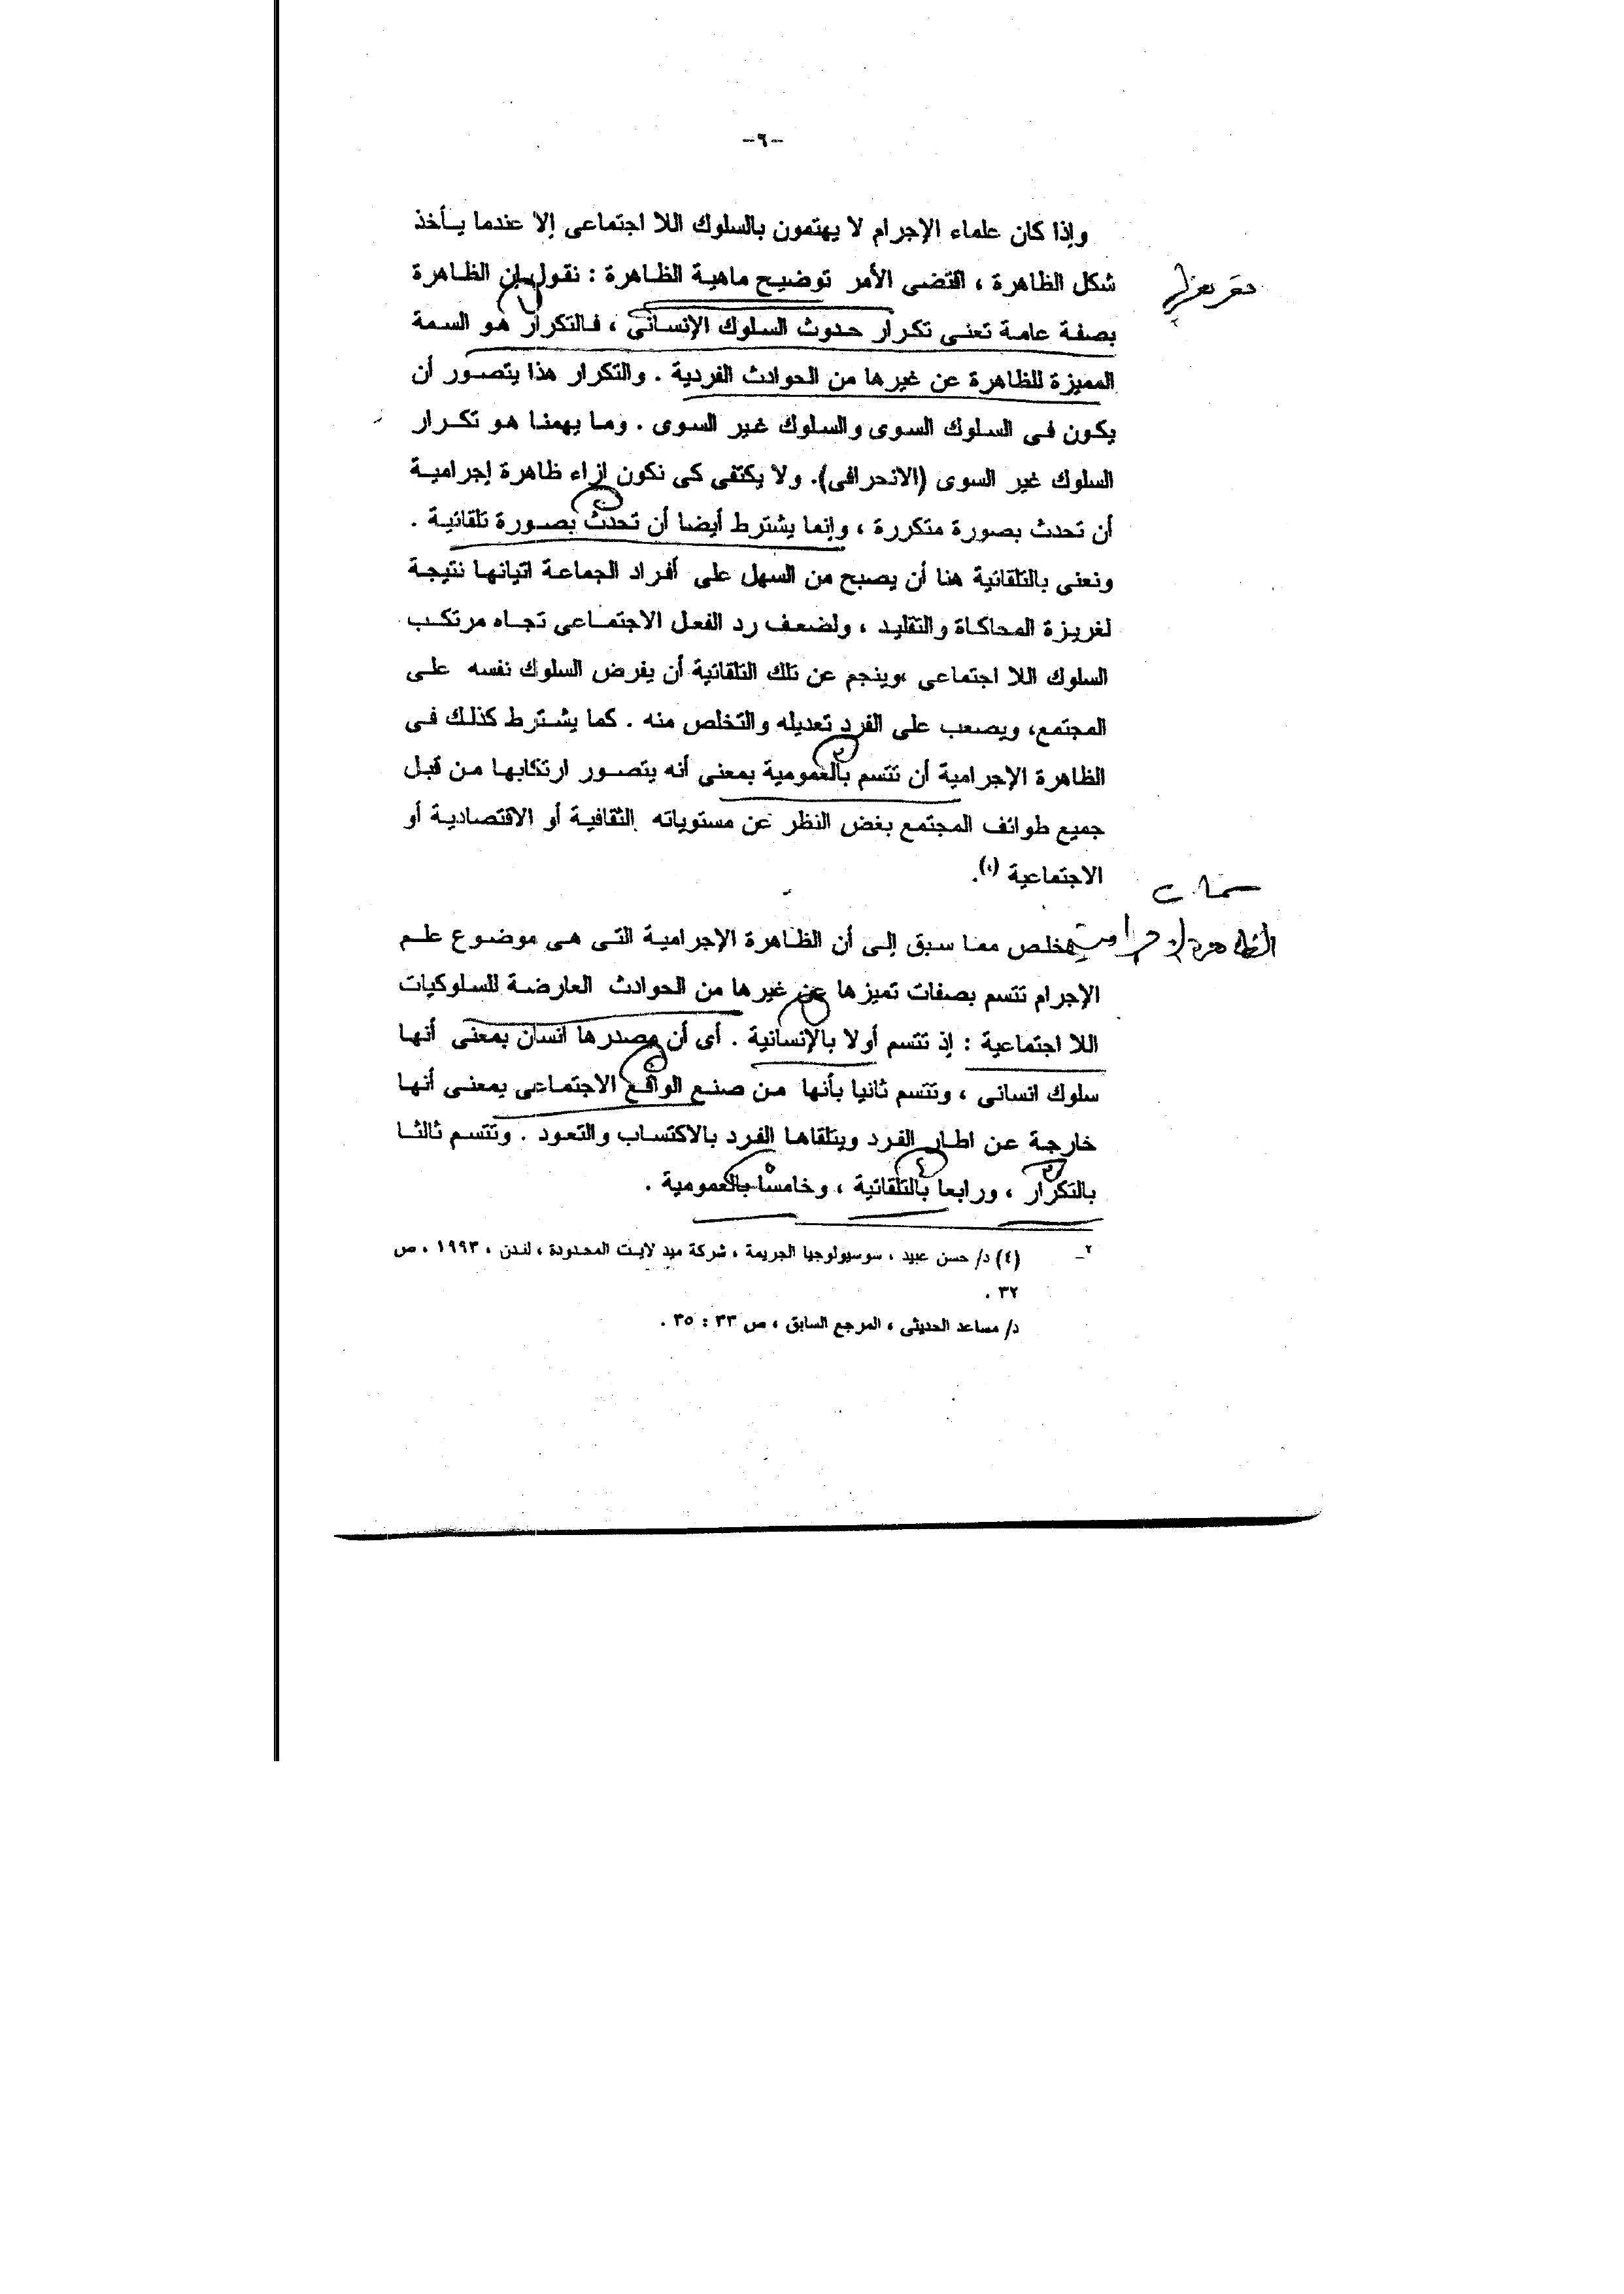 -٦-
وإذا كان علماء الإجرام لا يهتمون بالسلوك اللا اجتماعى إلا عندما يأخذ
شكل الظاهرة ، اقتضى الأمر توضيح ماهية الظاهرة : نقول إن الظاهرة
بصفة عامة تعنى تكرار حدوث السلوك الإنسانى ، فالتكرار هو السمة
المميزة للظاهرة عن غيرها من الحوادث الفردية . والتكرار هذا يتصور أن
يكون فى السلوك السوى والسلوك غير السوى . وما يهمنا هو تكرار
السلوك غير السوى (الانحرافى). ولا يكتفى كى نكون إزاء ظاهرة إجرامية
أن تحدث بصورة متكررة ، وإنما يشترط أيضا أن تحدث بصورة تلقائية .
ونعنى بالتلقائية هنا أن يصبح من السهل على أفراد الجماعة اتيانها نتيجة
لغريزة المحاكاة والتقليد ، ولضعف رد الفعل الاجتماعى تجاه مرتكب
السلوك اللا اجتماعى ،وينجم عن تلك التلقائية أن يفرض السلوك نفسه على
المجتمع، ويصعب على الفرد تعديله والتخلص منه . كما يشترط كذلك فى
الظاهرة الإجرامية أن تتسم بالعمومية بمعنى أنه يتصور ارتكابها من قبل
جميع طوائف المجتمع بغض النظر عن مستوياته الثقافية أو الاقتصادية أو
الاجتماعية .
سمات
الظاهرة الإجرامية
نخلص مما سبق إلى أن الظاهرة الإجرامية التى هى موضوع علم
الإجرام تتسم بصفات تميزها عن غيرها من الحوادث العارضة للسلوكيات
اللا اجتماعية : إذ تتسم أولا بالإنسانية . أى أن مصدرها انسان بمعنى أنها
سلوك انسانى ، وتتسم ثانيا بأنها من صنع الواقع الاجتماعى بمعنى أنها
خارجة عن اطار الفرد ويتلقاها الفرد بالاكتساب والتعود . وتتسم ثالثا
بالتكرار ، ورابعا بالتلقائية ، وخامسا بالعمومية .
٢- (٤) د/ حسن عبيد ، سوسيولوجيا الجريمة ، شركة ميد لايت المحدودة ، لندن ، ١٩٩٣ ، ص
٣٢ .
د/ مساعد الحديثى ، المرجع السابق ، ص ٣٣ : ٣٥ .